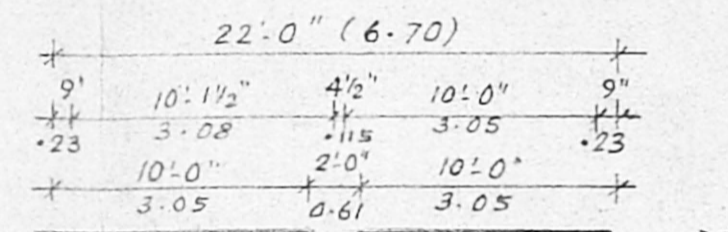 22'-0" (6.70)
9' 10'-1½" 4½" 10'-0" 9"
.23 3.08 .115 3.05 .23
10'-0" 2'-0" 10'-0"
3.05 0.61 3.05